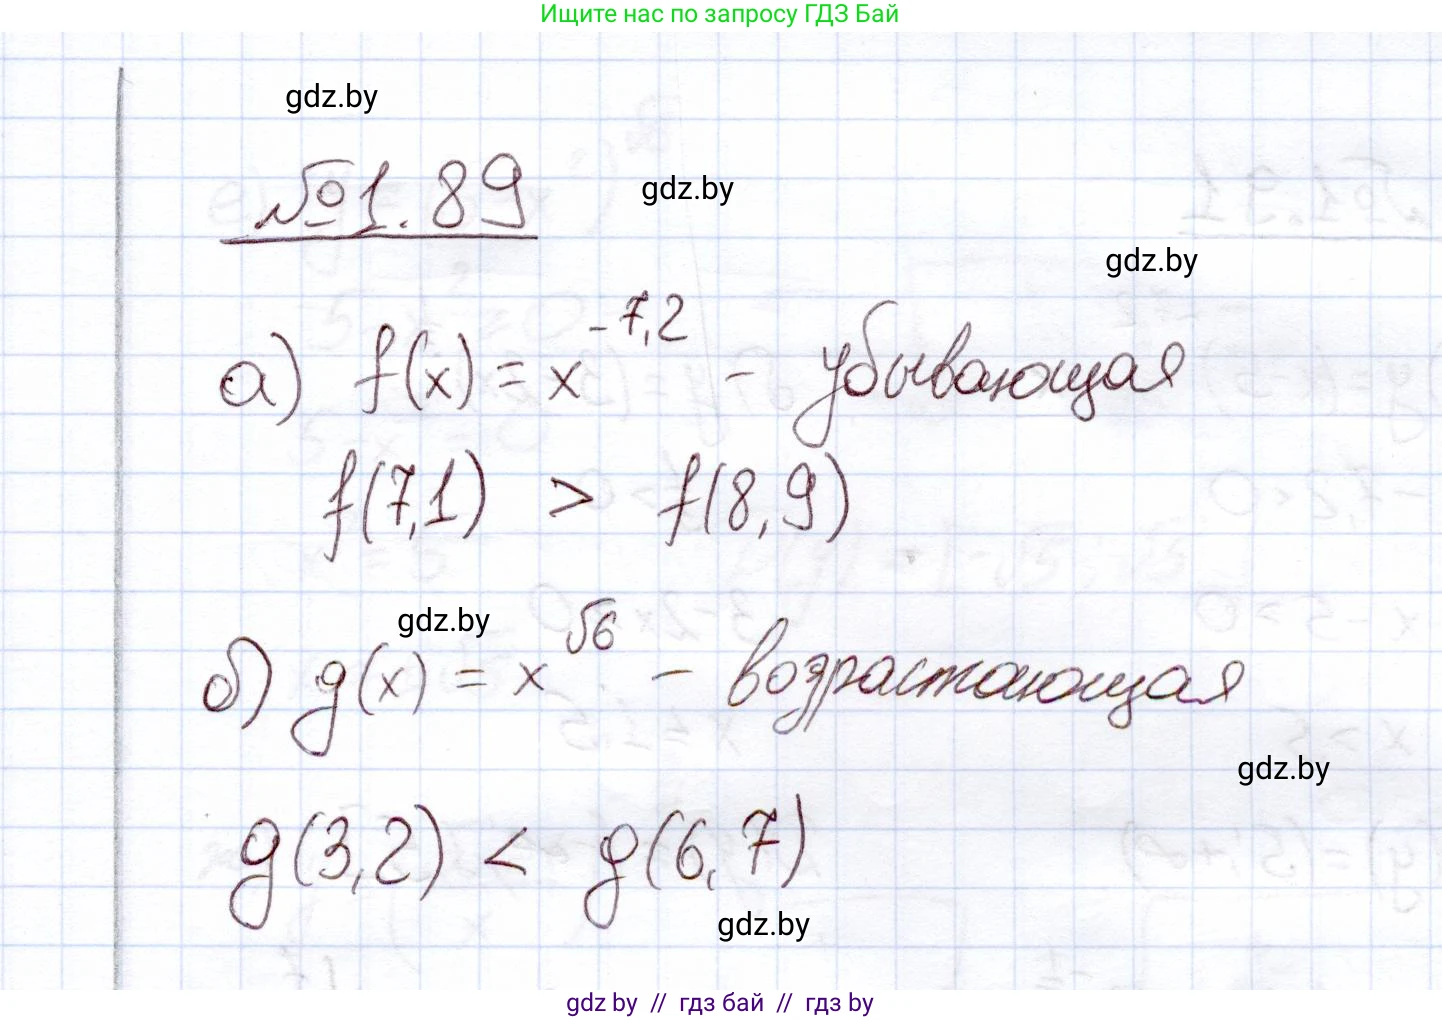 Ищите нас по запросу ГДЗ Бай
gdz.by
№1.89
gdz.by
gdz.by
а) f(x) = x^{-7,2} - убывающая
f(7,1) > f(8,9)
gdz.by
б) g(x) = x^{√6} - возрастающая
gdz.by
g(3,2) < g(6,7)
gdz.by
gdz by // гдз бай // гдз by